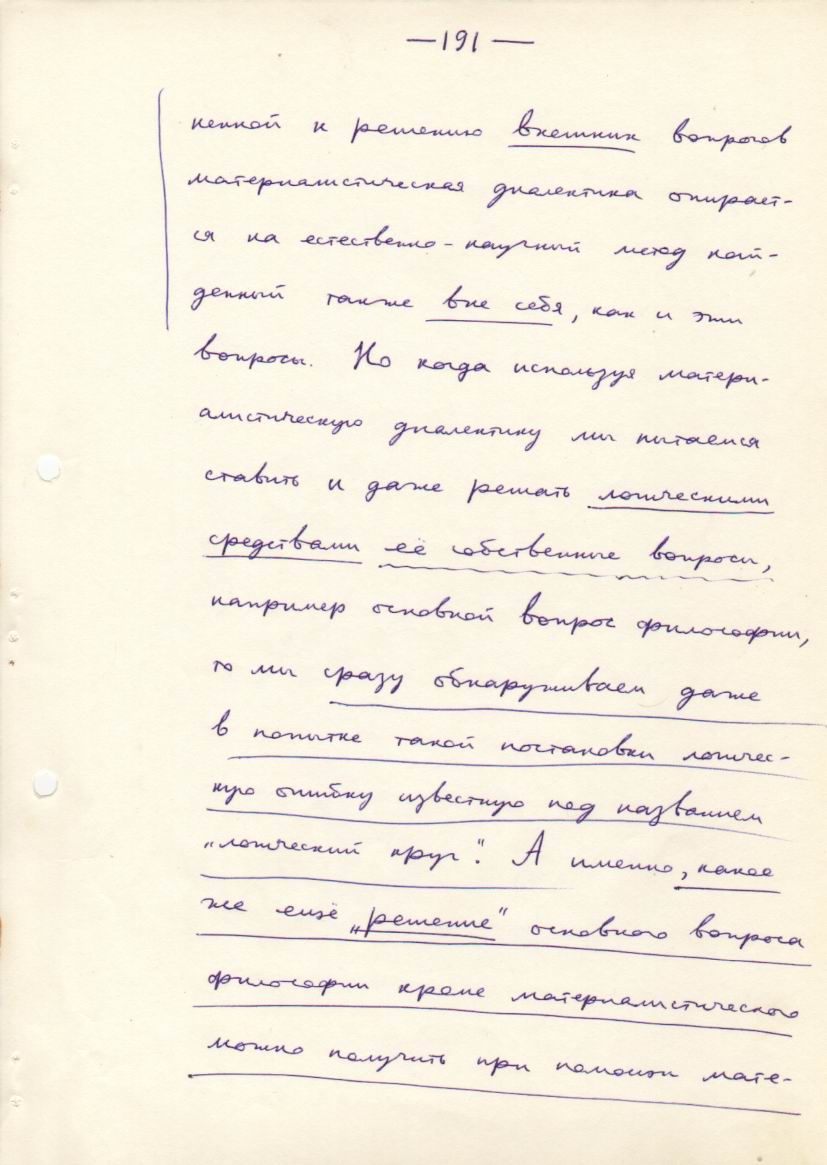 — 191 —
ненной к решению внешних вопросов
материалистическая диалектика опирает-
ся на естественно-научный метод най-
денный также вне себя, как и эти
вопросы. Но когда используя матери-
алистическую диалектику мы пытаемся
ставить и даже решать логическими
средствами её собственные вопросы,
например основной вопрос философии,
то мы сразу обнаруживаем даже
в попытке такой постановки логичес-
кую ошибку известную под названием
„логический круг“. А именно, какое
же ещё „решение“ основного вопроса
философии кроме материалистического
можно получить при помощи мате-